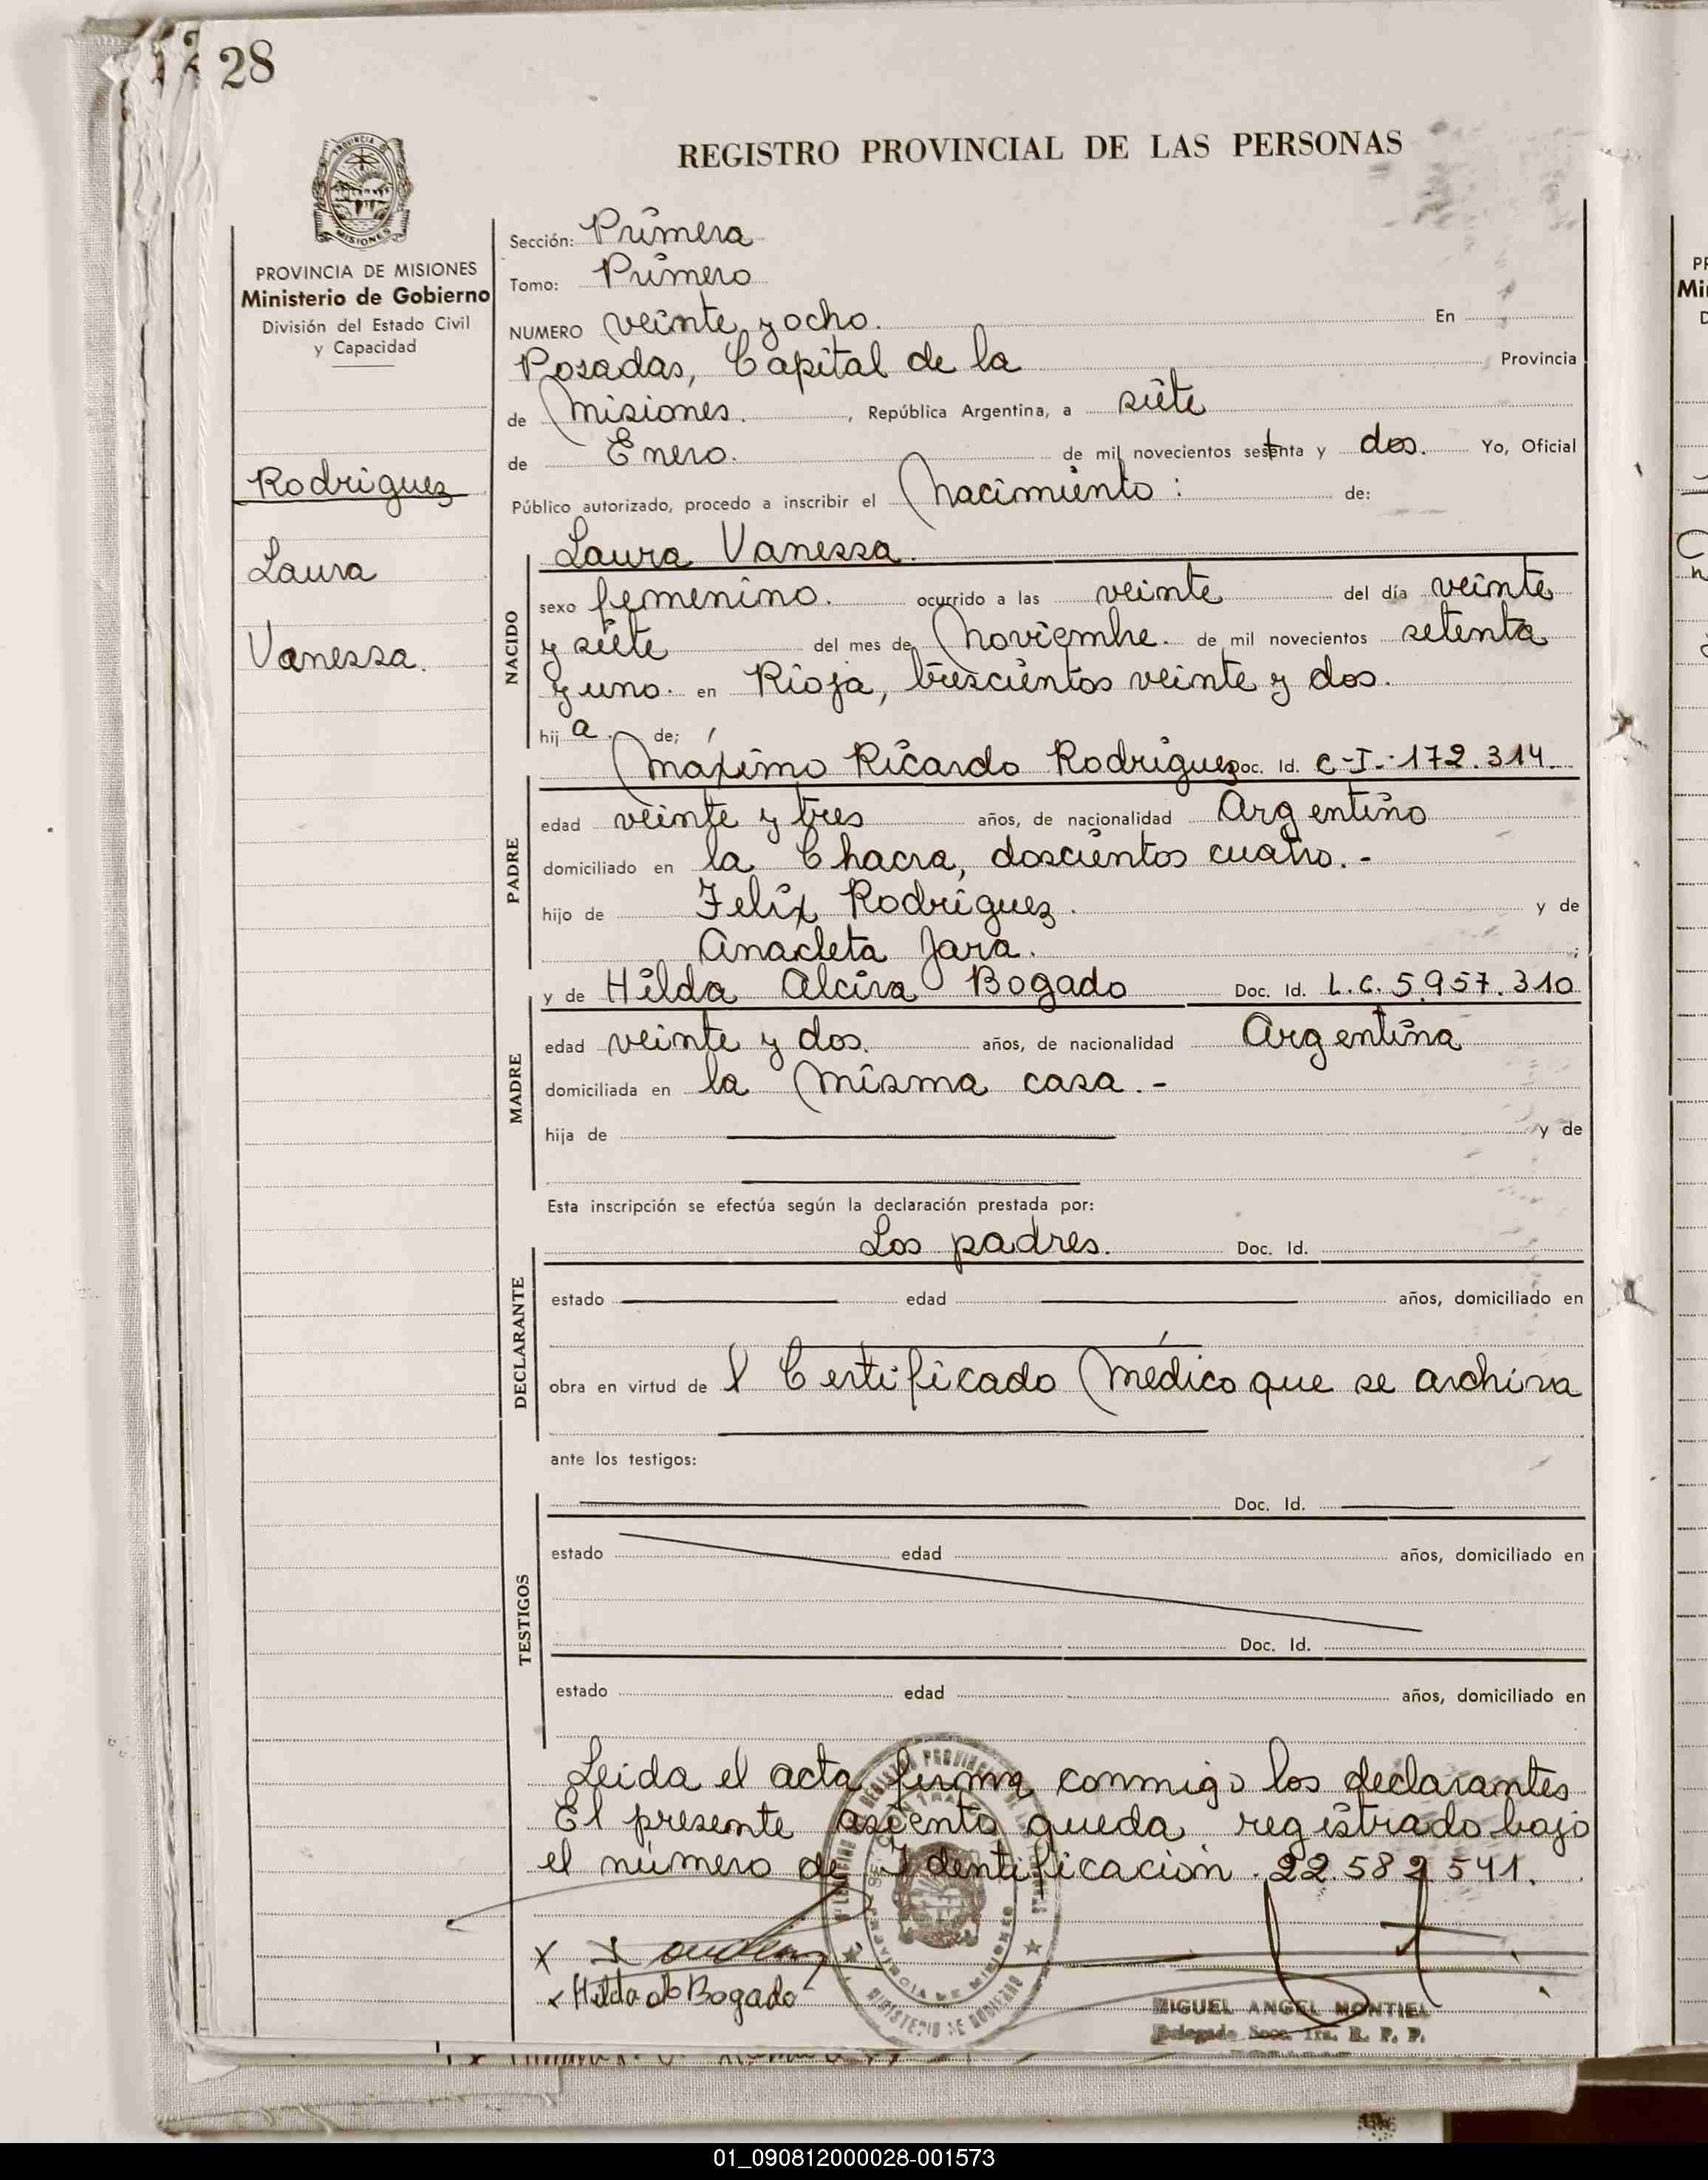 28
REGISTRO PROVINCIAL DE LAS PERSONAS
PROVINCIA DE MISIONES
Ministerio de Gobierno
División del Estado Civil
y Capacidad
Rodriguez
Laura
Vanessa.
Sección: Primera
Tomo: Primero
NUMERO veinte y ocho. En
Posadas, Capital de la Provincia
de Misiones. , República Argentina, a siete
de Enero. de mil novecientos setenta y dos. Yo, Oficial
Público autorizado, procedo a inscribir el Nacimiento: de:
Laura Vanessa.
NACIDO
sexo femenino. ocurrido a las veinte del día veinte
y siete del mes de Noviembre. de mil novecientos setenta
y uno. en Rioja, trescientos veinte y dos.
hij a. de;
Maximo Ricardo Rodriguez Doc. Id. C-I-172.314.
PADRE
edad veinte y tres años, de nacionalidad Argentino
domiciliado en la Chacra, doscientos cuatro.-
hijo de Felix Rodriguez. y de
Anacleta Jara. ;
y de Hilda Alcira Bogado Doc. Id. L.C. 5.957.310
MADRE
edad veinte y dos. años, de nacionalidad Argentina
domiciliada en la misma casa.-
hija de y de
Esta inscripción se efectúa según la declaración prestada por:
Los padres. Doc. Id.
DECLARANTE
estado edad años, domiciliado en
obra en virtud de l Certificado Médico que se archiva
ante los testigos:
Doc. Id.
TESTIGOS
estado edad años, domiciliado en
Doc. Id.
estado edad años, domiciliado en
Leida el acta firma conmigo los declarantes
El presente asiento queda registrado bajo
el número de Identificación 22.582541.
x
x Hilda A Bogado
MIGUEL ANGEL MONTIEL
Delegado Secc. 1ra. R. P. P.
01_090812000028-001573